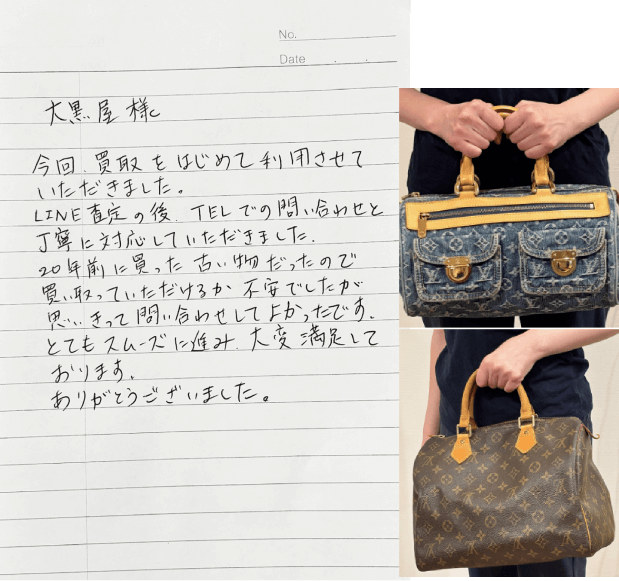 No.
Date
大黒屋 様
今回、買取をはじめて利用させて
いただきました。
LINE査定の後、TELでの問い合わせと
丁寧に対応していただきました。
20年前に買った古い物だったので
買い取っていただけるか不安でしたが
思いきって問い合わせしてよかったです。
とてもスムーズに進み、大変満足して
おります。
ありがとうございました。